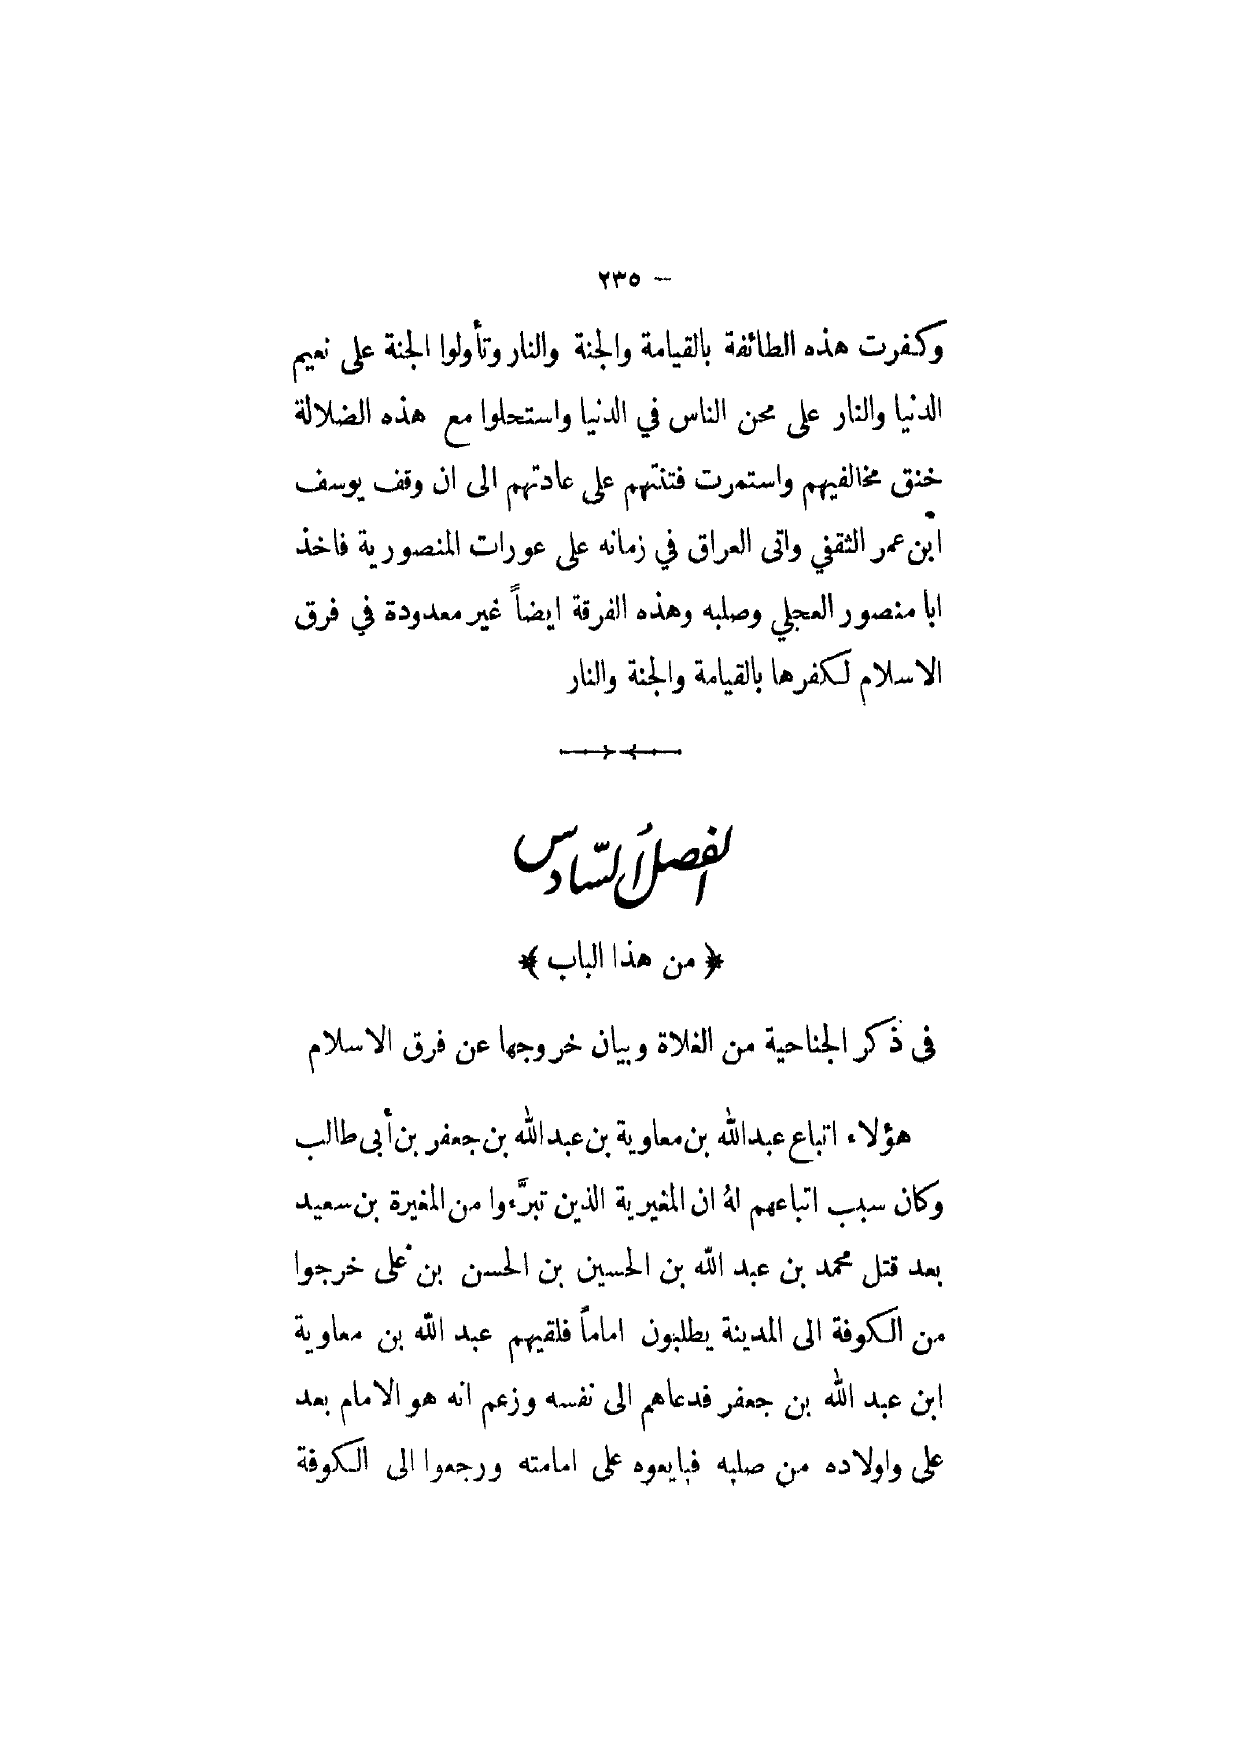 — ٢٣٥
وكفرت هذه الطائفة بالقيامة والجنة والنار وتأولوا الجنة على نعيم
الدنيا والنار على محن الناس في الدنيا واستحلوا مع هذه الضلالة
خنق مخالفيهم واستمرت فتنتهم على عادتهم الى ان وقف يوسف
ابن عمر الثقفي واتى العراق في زمانه على عورات المنصورية فاخذ
ابا منصور العجلي وصلبه وهذه الفرقة ايضاً غير معدودة في فرق
الاسلام لكفرها بالقيامة والجنة والنار
الفصل السّادس
﴿ من هذا الباب ﴾
فى ذكر الجناحية من الغلاة وبيان خروجها عن فرق الاسلام
هؤلاء اتباع عبدالله بن معاوية بن عبدالله بن جعفر بن أبى طالب
وكان سبب اتباعهم لهُ ان المغيرية الذين تبرَّءوا من المغيرة بن سعيد
بعد قتل محمد بن عبد الله بن الحسين بن الحسن بن على خرجوا
من الكوفة الى المدينة يطلبون اماماً فلقيهم عبد الله بن معاوية
ابن عبد الله بن جعفر فدعاهم الى نفسه وزعم انه هو الامام بعد
على واولاده من صلبه فبايعوه على امامته ورجعوا الى الكوفة